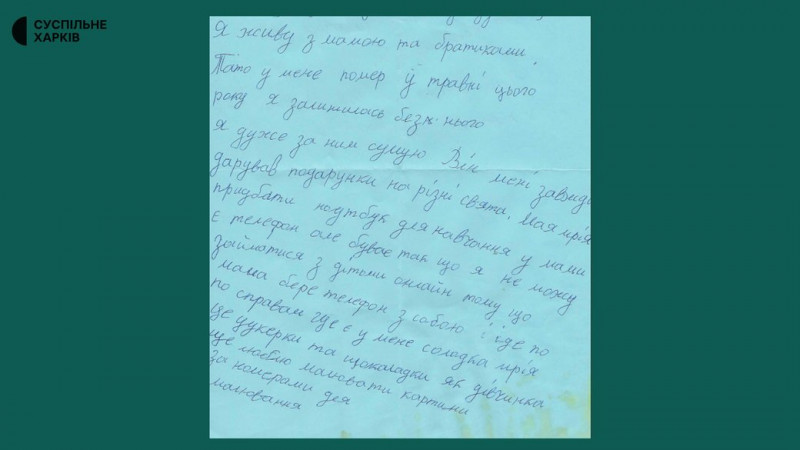 СУСПІЛЬНЕ
ХАРКІВ
Я живу з мамою та братиками.
Тато у мене помер у травні цього
року я залишилась без нього
я дуже за ним сумую Він мені завжди
дарував подарунки на різні свята. Моя мрія
придбати ноутбук для навчання у мами
є телефон але буває так що я не можу
займатися з дітьми онлайн тому що
мама бере телефон з собою і іде по
по справам ще є у мене солодка мрія
це цукерки та щоколадки як дівчинка
ще люблю малювати картини
за номерами для
малювання